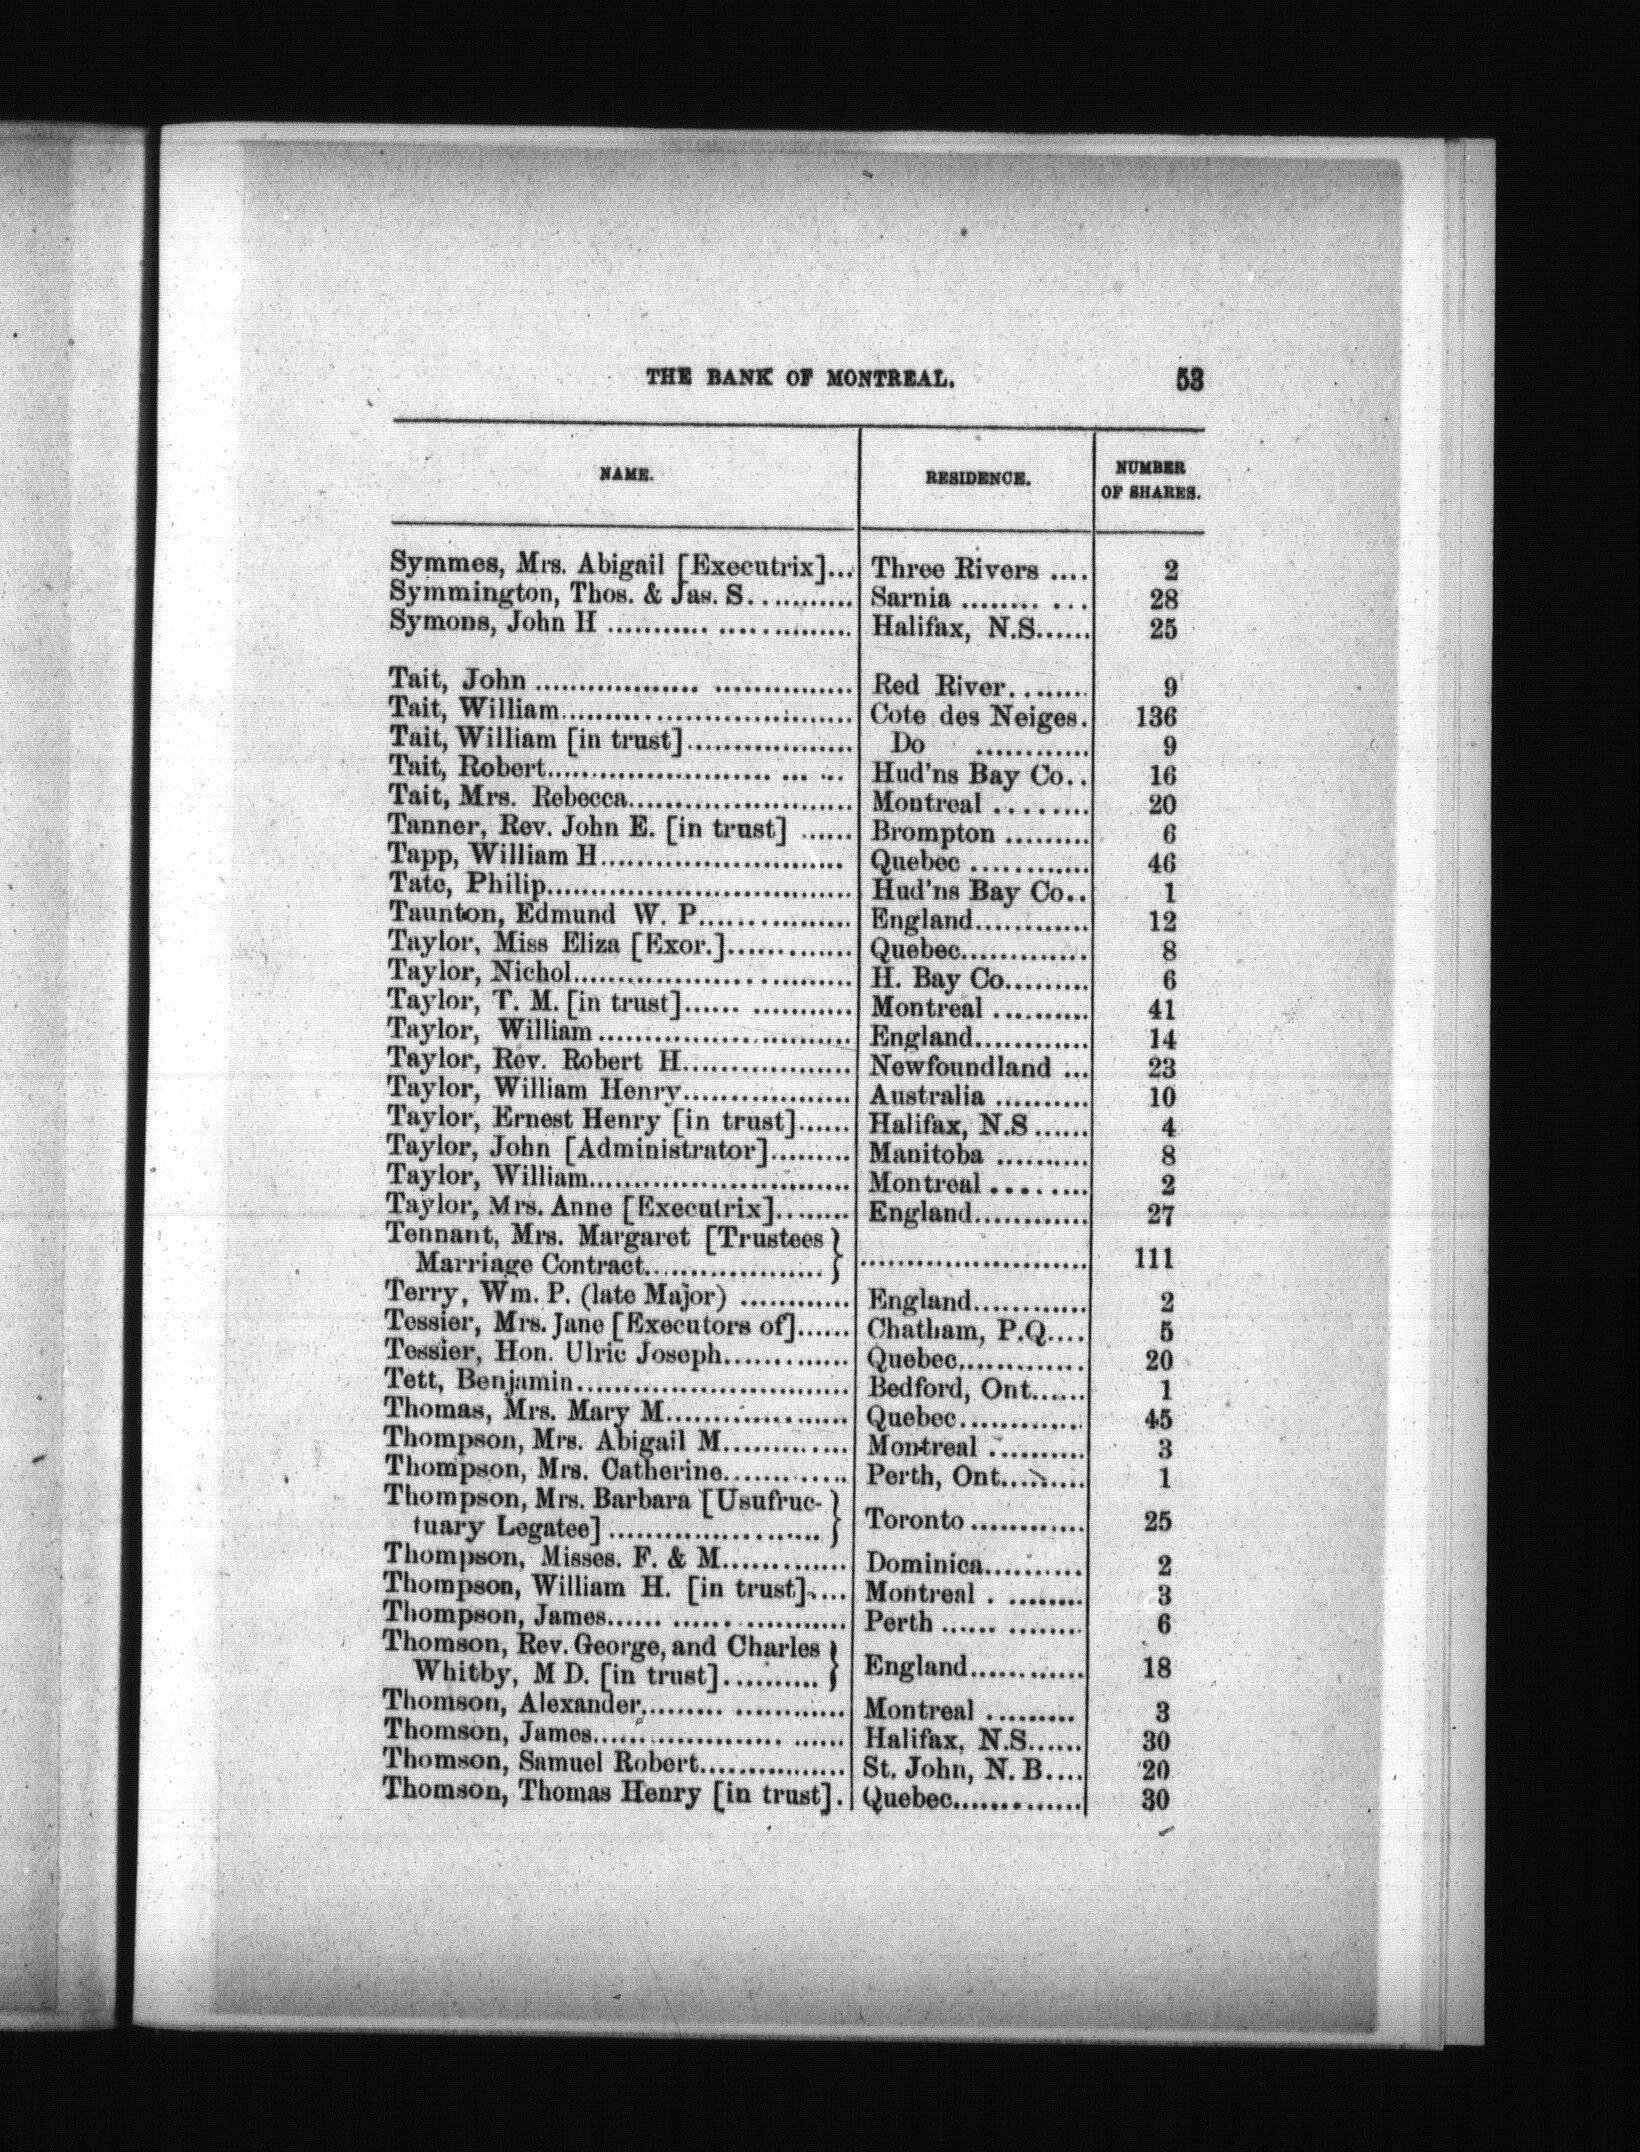 THE BANK OF MONTREAL. 53
NAME. RESIDENCE. NUMBER OF SHARES.
Symmes, Mrs. Abigail [Executrix]... Three Rivers .... 2
Symmington, Thos. & Jas. S............ Sarnia ........ ... 28
Symons, John H ........... .............. Halifax, N.S...... 25
Tait, John .................. ............... Red River........ 9
Tait, William................................ Cote des Neiges. 136
Tait, William [in trust].................. Do ............ 9
Tait, Robert......................... ... ... Hud'ns Bay Co.. 16
Tait, Mrs. Rebecca........................ Montreal ........ 20
Tanner, Rev. John E. [in trust] ...... Brompton ......... 6
Tapp, William H........................... Quebec ............ 46
Tate, Philip................................. Hud'ns Bay Co.. 1
Taunton, Edmund W. P................ England............ 12
Taylor, Miss Eliza [Exor.]............. Quebec............. 8
Taylor, Nichol.............................. H. Bay Co......... 6
Taylor, T. M. [in trust]...... ........... Montreal .......... 41
Taylor, William ........................... England............ 14
Taylor, Rev. Robert H.................. Newfoundland ... 23
Taylor, William Henry.................. Australia .......... 10
Taylor, Ernest Henry [in trust]...... Halifax, N.S ...... 4
Taylor, John [Administrator]......... Manitoba .......... 8
Taylor, William............................ Montreal ......... 2
Taylor, Mrs. Anne [Executrix]........ England............ 27
Tennant, Mrs. Margaret [Trustees
Marriage Contract................... } ........................ 111
Terry, Wm. P. (late Major) ............ England............ 2
Tessier, Mrs. Jane [Executors of]...... Chatham, P.Q.... 5
Tessier, Hon. Ulric Joseph............. Quebec............. 20
Tett, Benjamin............................. Bedford, Ont...... 1
Thomas, Mrs. Mary M................... Quebec............. 45
Thompson, Mrs. Abigail M............. Montreal .......... 3
Thompson, Mrs. Catherine............. Perth, Ont......... 1
Thompson, Mrs. Barbara [Usufruc-
tuary Legatee] ....................... } Toronto ............ 25
Thompson, Misses. F. & M............. Dominica.......... 2
Thompson, William H. [in trust].... Montreal . ........ 3
Thompson, James...... ...... ........... Perth ...... ........ 6
Thomson, Rev. George, and Charles
Whitby, M D. [in trust].......... } England............ 18
Thomson, Alexander......... ............ Montreal ......... 3
Thomson, James.................... ...... Halifax, N.S...... 30
Thomson, Samuel Robert............... St. John, N. B.... 20
Thomson, Thomas Henry [in trust]. Quebec............. 30